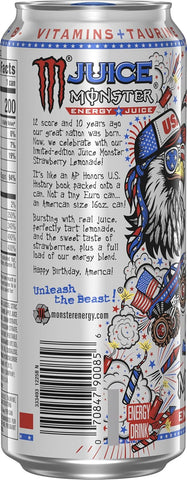 VITAMINS + TAURIN
JUICE
MONSTER
ENERGY + JUICE
12 score and 10 years ago
our great nation was born.
Now, we celebrate with our
limited-edition Juice Monster
Strawberry Lemonade!
It's like an AP Honors U.S.
History book packed onto a
can. Not a tiny Euro can...
an American size 16oz. can!
Bursting with real juice,
perfectly tart lemonade,
and the sweet taste of
strawberries, plus a full
load of our energy blend.
Happy Birthday, America!
Unleash
the Beast!®
monsterenergy.com®
facts
200
ENERGY
DRINK
0 70847 90085 6